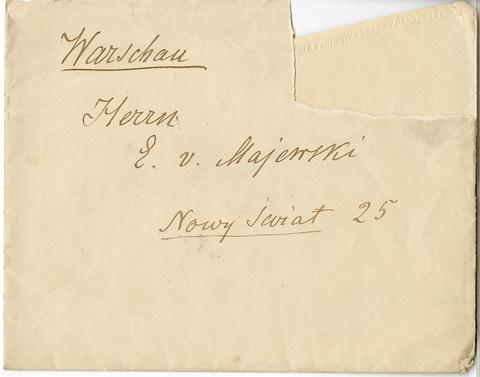 Warschau
Herrn
E. v. Majewski
Nowy Świat 25